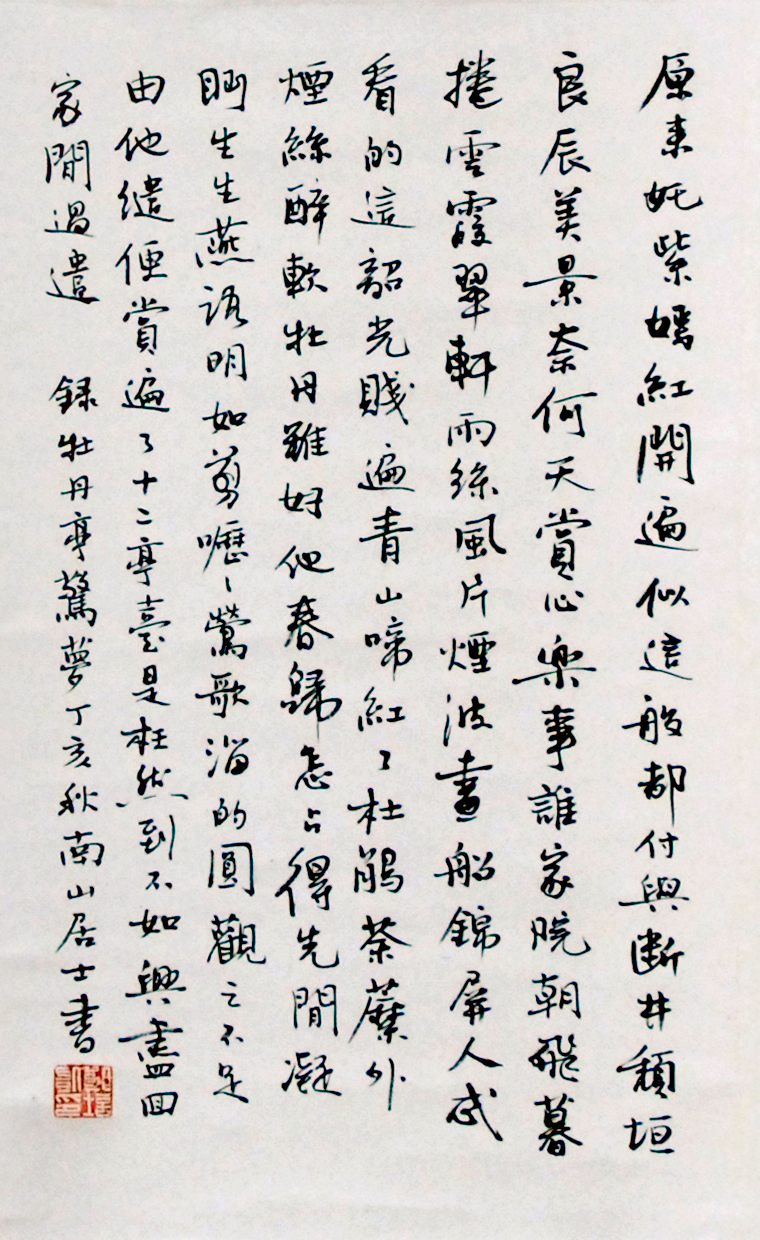 原来奼紫嫣紅開遍似這般都付與斷井頹垣
良辰美景奈何天賞心樂事誰家院朝飛暮
捲雲霞翠軒雨絲風片煙波畫船錦屏人忒
看的這韶光賤遍青山啼紅了杜鵑荼蘼外
煙絲醉軟牡丹雖好他春歸怎占得先閒凝
眄生生燕語明如翦嚦嚦鶯歌溜的圓觀之不足
由他繾便賞遍了十二亭臺是枉然到不如興盡回
家閒過遣 錄牡丹亭驚夢丁亥秋南山居士書